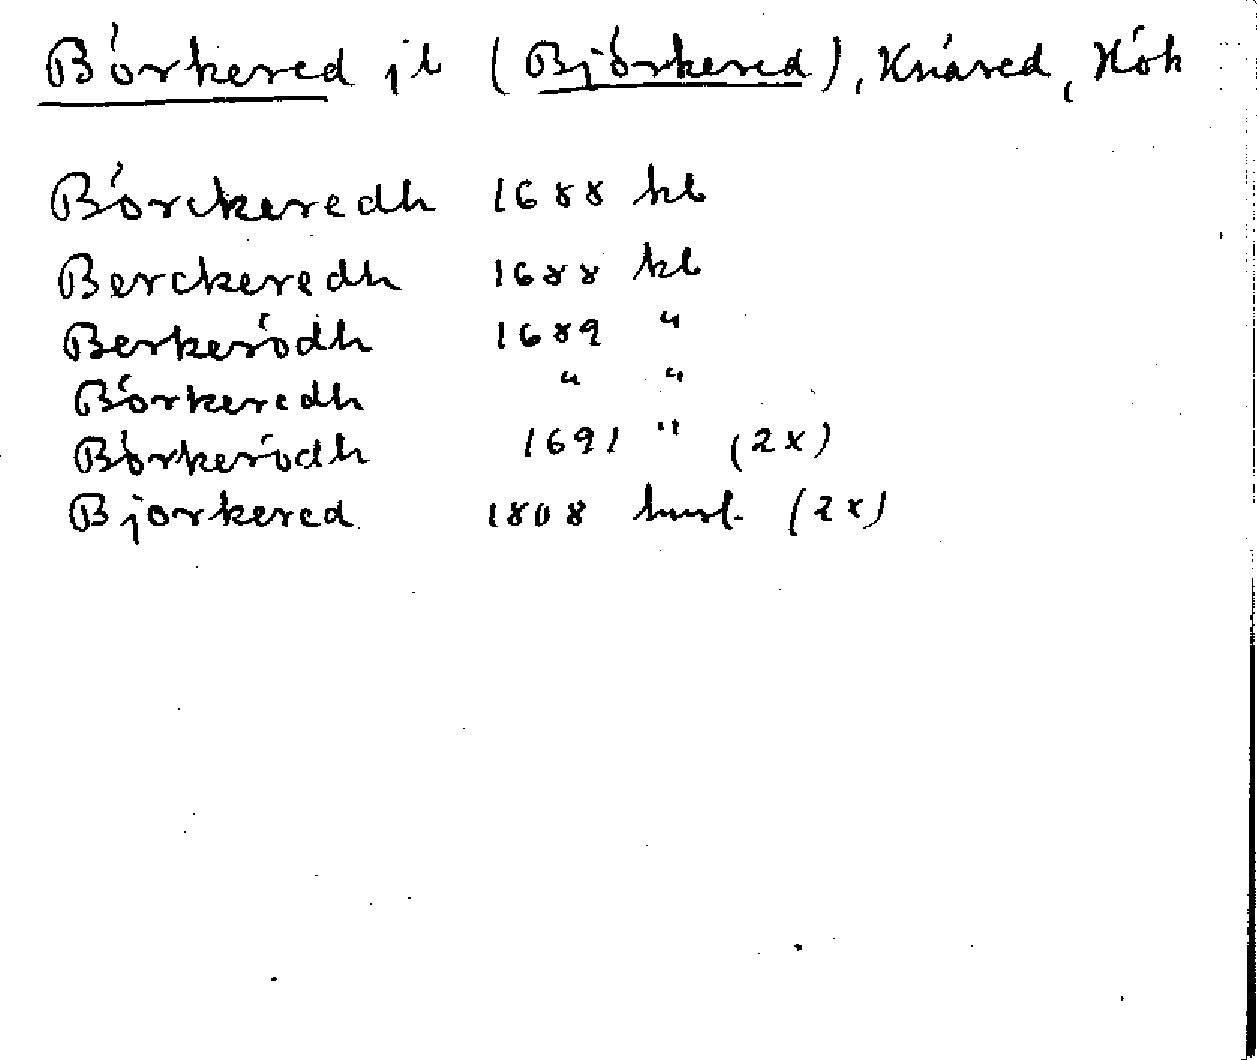 Börkered jb (Björkered), Knäred, Hök
Börckeredh 1688 kb
Berckeredh 1688 kb
Berkerödh 1689 "
Börkeredh " "
Börkerödh 1691 " (2x)
Bjorkered 1808 husf. (2x)